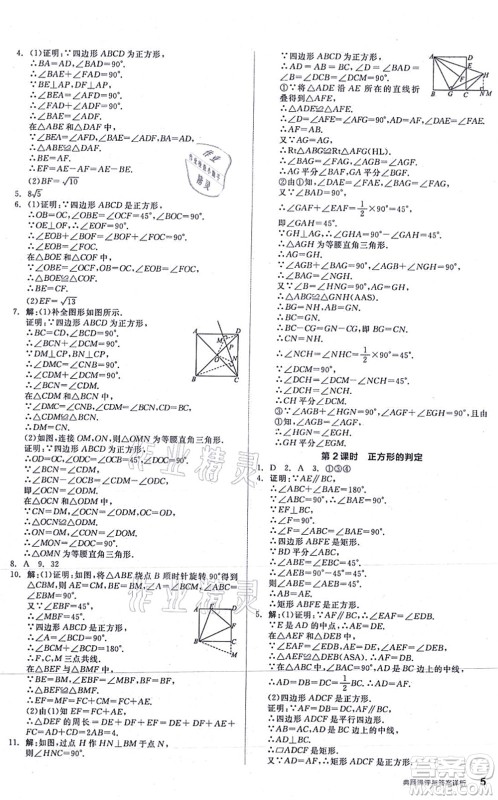 4. (1)证明：∵四边形 ABCD 为正方形，
∴BA=AD，∠BAD=90°.
∴∠BAE+∠FAD=90°.
∵BE⊥AP，DF⊥AP，
∴∠BEA=∠AFD=90°.
∴∠FAD+∠ADF=90°.
∴∠BAE=∠ADF.
在△ABE 和△DAF 中，
∴△ABE≌△DAF.
∴BE=AF.
∴EF=AE-AF=AE-BE.
(2)BF=√10
5. 8√5
6. (1)证明：∵四边形 ABCD 是正方形，
∴OB=OC，∠OBE=∠OCF=45°，∠BOC=90°.
∴∠EOB+∠BOF=90°.
∵OE⊥OF，
∴∠BOF+∠COF=90°.
∴∠EOB=∠FOC.
在△BOE 和△COF 中，
∴△BOE≌△COF.
∴BE=CF.
(2)EF=√13
7. 解：(1)补全图形如图所示.
证明：∵四边形 ABCD 是正方形，
∴BC=CD，∠BCD=90°.
∴∠BCN+∠DCN=90°.
∵DM⊥CP，BN⊥CP，
∴∠DMC=∠CNB=90°.
∴∠CDM+∠DCM=90°.
∴∠BCN=∠CDM.
在△CDM 和△BCN 中，
∴△DMC≌△CNB.
∴CM=BN.
(2)如图，连接 OM，ON，△OMN 为等腰直角三角形.
证明：∵四边形 ABCD 为正方形，
∴OC=OD，∠OCB=∠ODC=45°，∠DOC=90°.
∵∠BCN=∠CDM，
∴∠BCN-45°=∠CDM-45°，
即∠OCN=∠ODM.
在△OCN 和△ODM 中，
∴△OCN≌△ODM.
∴ON=OM，∠CON=∠DOM.
∴∠MON=∠DOC=90°.
∴△OMN 为等腰直角三角形.
8. A　9. 32
10. 解：(1)证明：如图，将△ABE 绕点 B 顺时针旋转 90°得到
△CBM，则△ABE≌△CBM.
∴BE=BM，∠EBM=90°.
∵∠EBF=45°，
∴∠MBF=45°.
∴∠EBF=∠MBF.
∵四边形 ABCD 为正方形，
∴∠A=∠BCD=90°.
∴∠A=∠BCM=90°.
∴F，C，M 三点共线.
在△BEF 与△BMF 中，
∵BE=BM，∠EBF=∠MBF，BF=BF，
∴△BEF≌△BMF.
∴EF=MF.
(2)由(1)知 EF=MF，CM=AE.
∴EF=MF=FC+CM=FC+AE.
∴△DEF 的周长=DE+DF+EF=DE+DF+FC+
AE=AD+DC=12.
11. 解：如图，过点 H 作 HN⊥BM 于点 N，
则∠HNC=90°.
∵四边形 ABCD 为正方形，
∴AD=AB=BC，∠D=∠DAB=
∠B=∠DCB=∠DCM=90°.
①∵将△ADE 沿 AE 所在的直线折
叠得到△AFE，
∴△ADE≌△AFE.
∴∠D=∠AFE=∠AFG=90°，AD=AF.
∴AF=AB.
又∵AG=AG，
∴Rt△ABG≌Rt△AFG(HL).
∴∠BAG=∠FAG，∠AGB=∠AGF.
∴AG 平分∠BAF，GA 平分∠BGF.
②由①知，∠DAE=∠FAE，∠BAG=∠FAG.
又∵∠BAD=90°，
∴∠GAF+∠EAF=1/2×90°=45°，
即∠GAH=45°.
∵GH⊥AG，
∴∠GHA=90°-∠GAH=45°.
∴△AGH 为等腰直角三角形.
∴AG=GH.
∵∠AGB+∠BAG=90°，∠AGB+∠HGN=90°，
∴∠BAG=∠NGH.
又∵∠B=∠HNG=90°，AG=GH，
∴△ABG≌△GNH(AAS).
∴BG=NH，AB=GN.
∴BC=GN.
∵BC-CG=GN-CG，
∴BG=CN.
∴CN=HN.
∴∠NCH=1/2×90°=45°.
∴∠DCH=90°-∠NCH=45°.
∴∠DCH=∠NCH.
∴CH 平分∠DCM.
③∵∠AGB+∠HGN=90°，∠AGF+∠EGH=90°，
由①知∠AGB=∠AGF，
∴∠HGN=∠EGH.
∴GH 平分∠EGC.
第 2 课时　正方形的判定
1. D　2. A　3. ①③④
4. 证明：∵AE∥BC，
∴∠ABC+∠BAE=180°.
∵∠ABC=90°，
∴∠BAE=90°.
∵BE⊥AF，
∴∠F=90°.
∴四边形 AEBF 是矩形.
∵BD 平分∠ABC，
∴∠EBA=1/2∠ABC=45°.
∵∠E=90°，
∴∠EAB=∠EBA=45°.
∴AE=BE.
∴矩形 AEBF 为正方形.
5. 解：(1)证明：∵AF∥BC，∴∠AFE=∠EDB.
∵E 是 AD 的中点，∴AE=DE.
在△AEF 与△DEB 中，
∴△AEF≌△DEB.∴AF=DB.
∵在△ABC 中，∠BAC=90°，AD 是 BC 边上的中线，
∴AD=CD=DB=1/2BC.
∴AD=AF.
(2)四边形 ADCF 是正方形.
证明：∵AF=BD=DC，AF∥BC，
∴四边形 ADCF 是平行四边形.
∵AB=AC，AD 是中线，∴AD⊥BC.
∵AD=AF，
∴四边形 ADCF 是正方形.
作业精灵
5